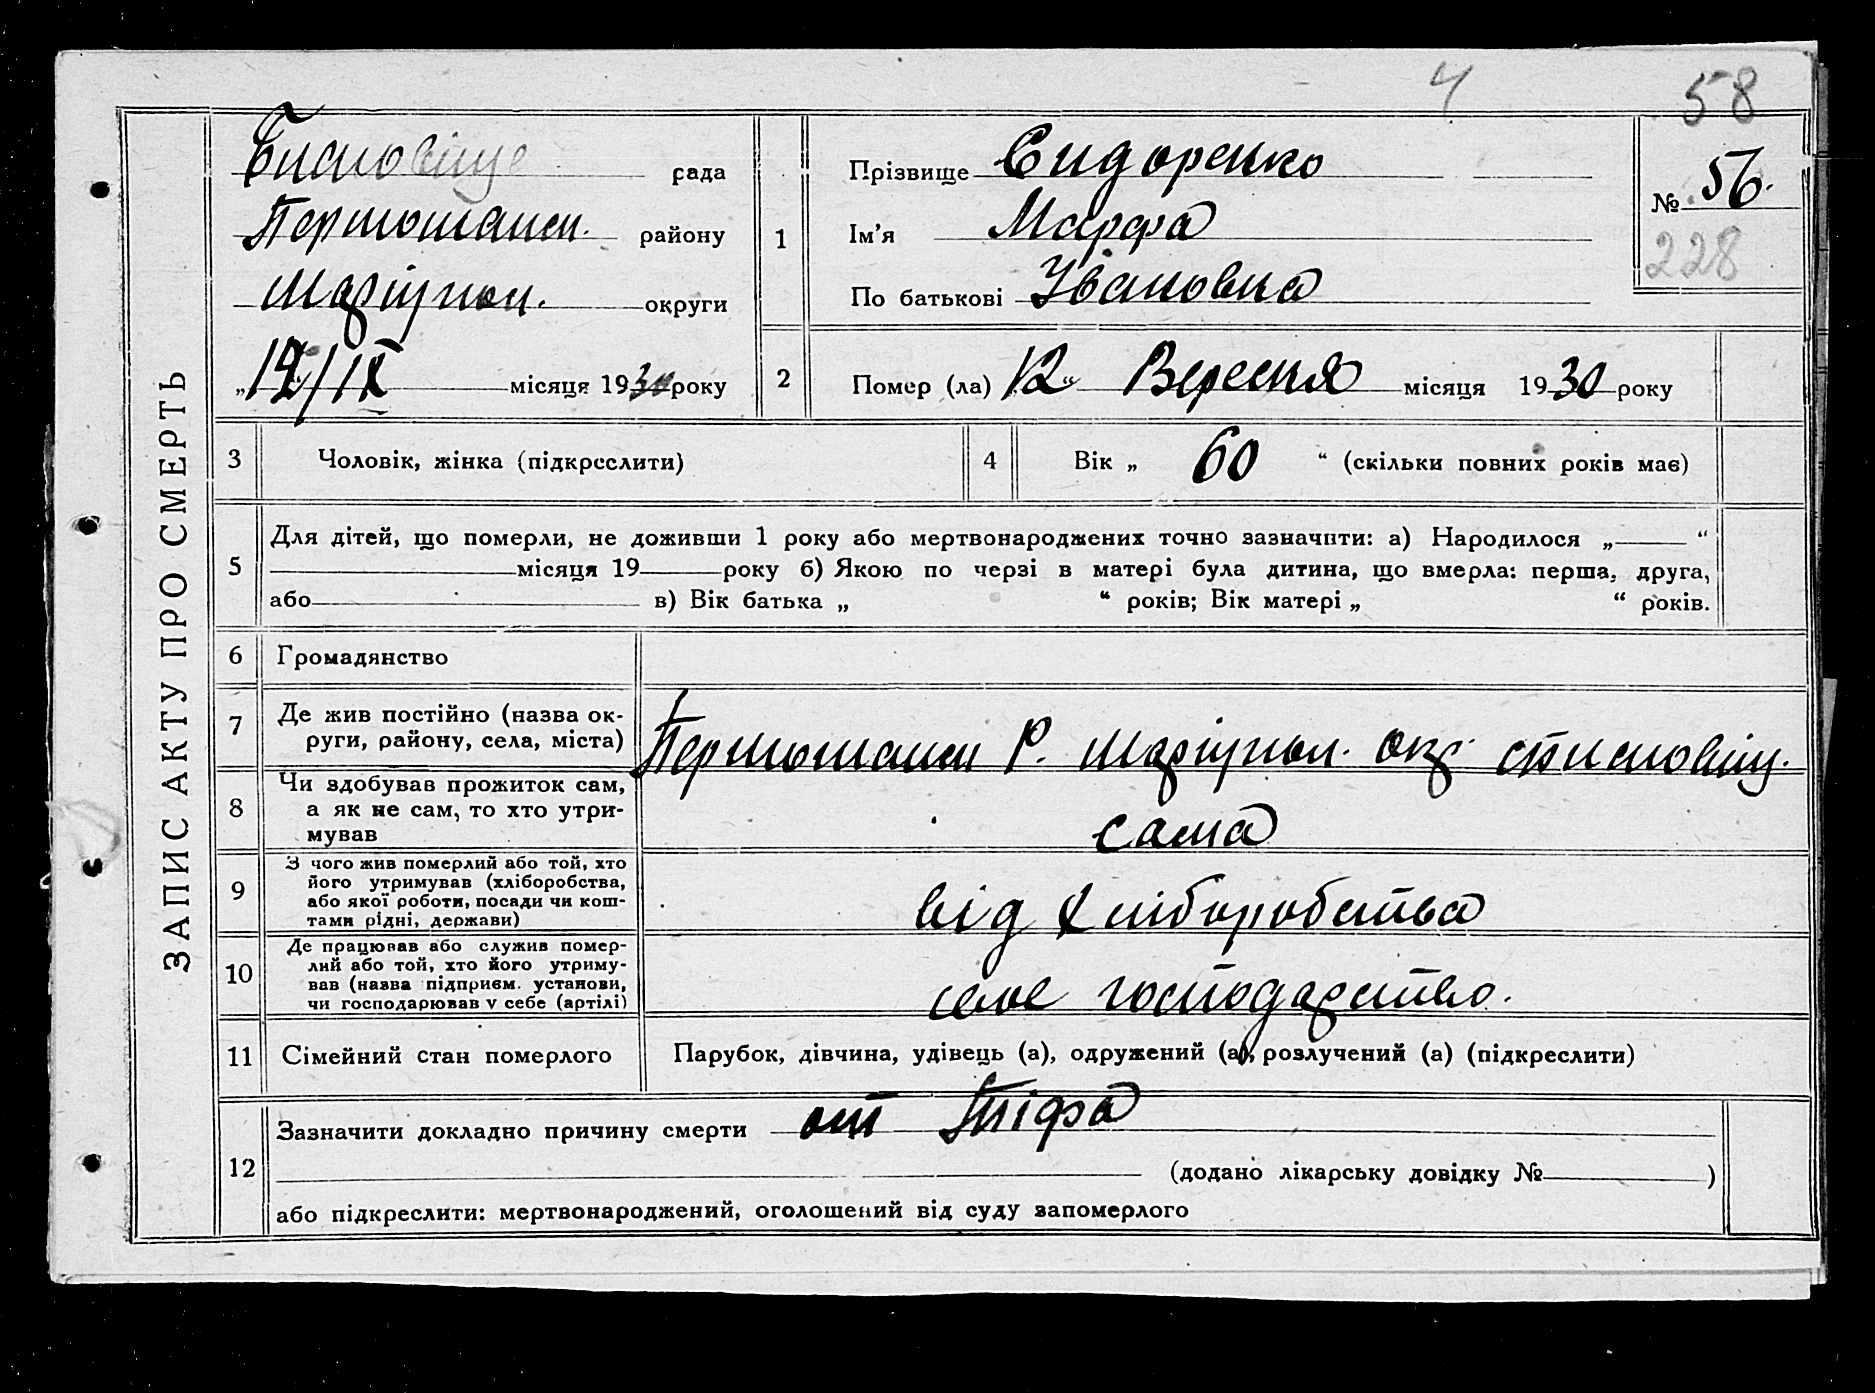 4 58
ЗАПИС АКТУ ПРО СМЕРТЬ
рада
Першотравн. району
Маріупол. округи
„ /IX місяця 1930 року
1
Прізвище Сидоренко
Ім'я Марфа
По батькові Івановна
№ 56.
228
2 Помер (ла) 12 “ Вересня місяця 1930 року
3 Чоловік, жінка (підкреслити)
4 Вік „ 60 “ (скільки повних років має)
5 Для дітей, що померли, не доживши 1 року або мертвонароджених точно зазначити: а) Народилося „ “
місяця 19 року б) Якою по черзі в матері була дитина, що вмерла: перша, друга,
або в) Вік батька „ “ років; Вік матері „ “ років.
6 Громадянство
7 Де жив постійно (назва ок-
руги, району, села, міста)
Р. Маріупол. окр.
8 Чи здобував прожиток сам,
а як не сам, то хто утри-
мував
сама
9 З чого жив померлий або той, хто
його утримував (хліборобства,
або якої роботи, посади чи кош-
тами рідні, держави)
від Хліборобства
10 Де працював або служив помер-
лий або той, хто його утриму-
вав (назва підприєм. установи,
чи господарював у себе (артілі)
господарство.
11 Сімейний стан померлого
Парубок, дівчина, удівець (а), одружений (а), розлучений (а) (підкреслити)
12 Зазначити докладно причину смерти от Тіфа
(додано лікарську довідку № )
або підкреслити: мертвонароджений, оголошений від суду запомерлого